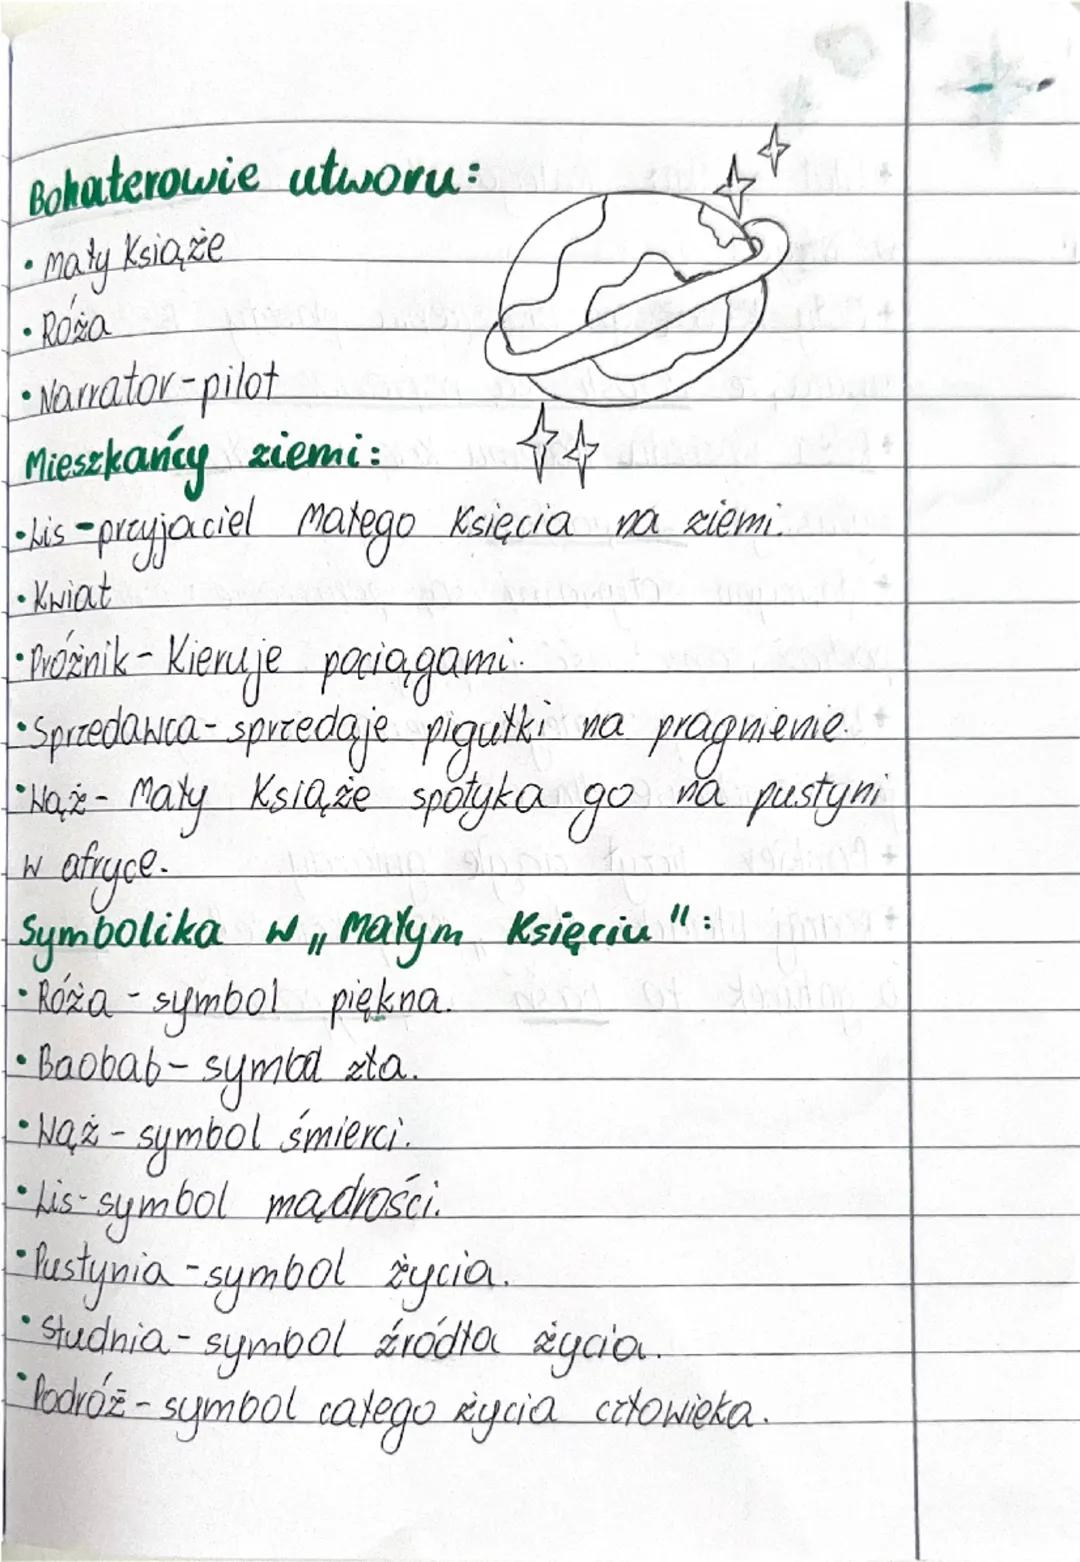 Bohaterowie utworu:
• Mały Książe
• Róża
• Narrator-pilot
Mieszkańcy ziemi:
• Lis - przyjaciel Małego Księcia na ziemi.
• Kwiat
• Próżnik - Kieruje pociągami.
• Sprzedawca - sprzedaje pigułki na pragnienie.
• Wąż - Mały Książe spotyka go na pustyni
w afryce.
Symbolika w „Małym Księciu":
• Róża - symbol piękna.
• Baobab - symbol zła.
• Wąż - symbol śmierci.
• Lis - symbol mądrości.
• Pustynia - symbol życia.
• Studnia - symbol źródła życia.
• Podróż - symbol całego życia człowieka.